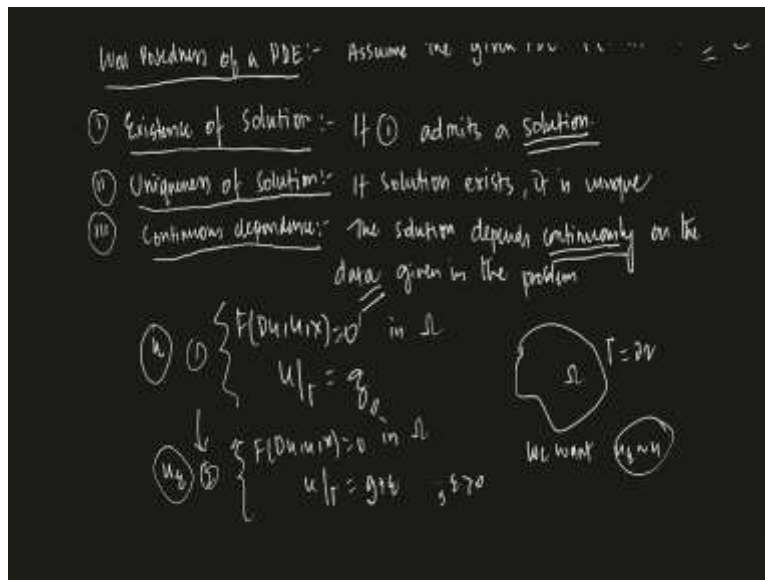 Well Posedness of a PDE:- Assume the given PDE
(i) Existence of Solution:- If (1) admits a solution.
(ii) Uniqueness of Solution:- If solution exists, it is unique
(iii) Continuous dependence:- The solution depends continuously on the
data given in the problem
u (1) { F(Du,u,x)=0 in Ω
u|Γ = g,
Ω Γ=∂Ω
uε { F(Du,u,x)=0 in Ω
u|Γ = g+ε , ε>0
We want uε≈u